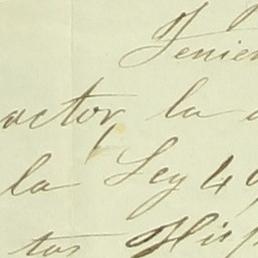 Tenien
actor la
la Ley 49
tos His